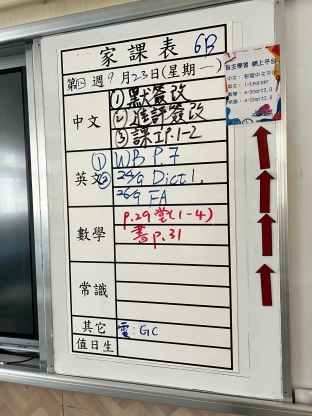 家課表 6B
第四週9月23日(星期一)
中文
① 默簽改
② 進評簽改
③ 課工P.1-2
英文
① WB P.7
② 24/9 Dict 1.
26/9 FA
數學
p.29 堂(1-4)
書p.31
常識
其它
電:GC
值日生
自主學習 網上平台